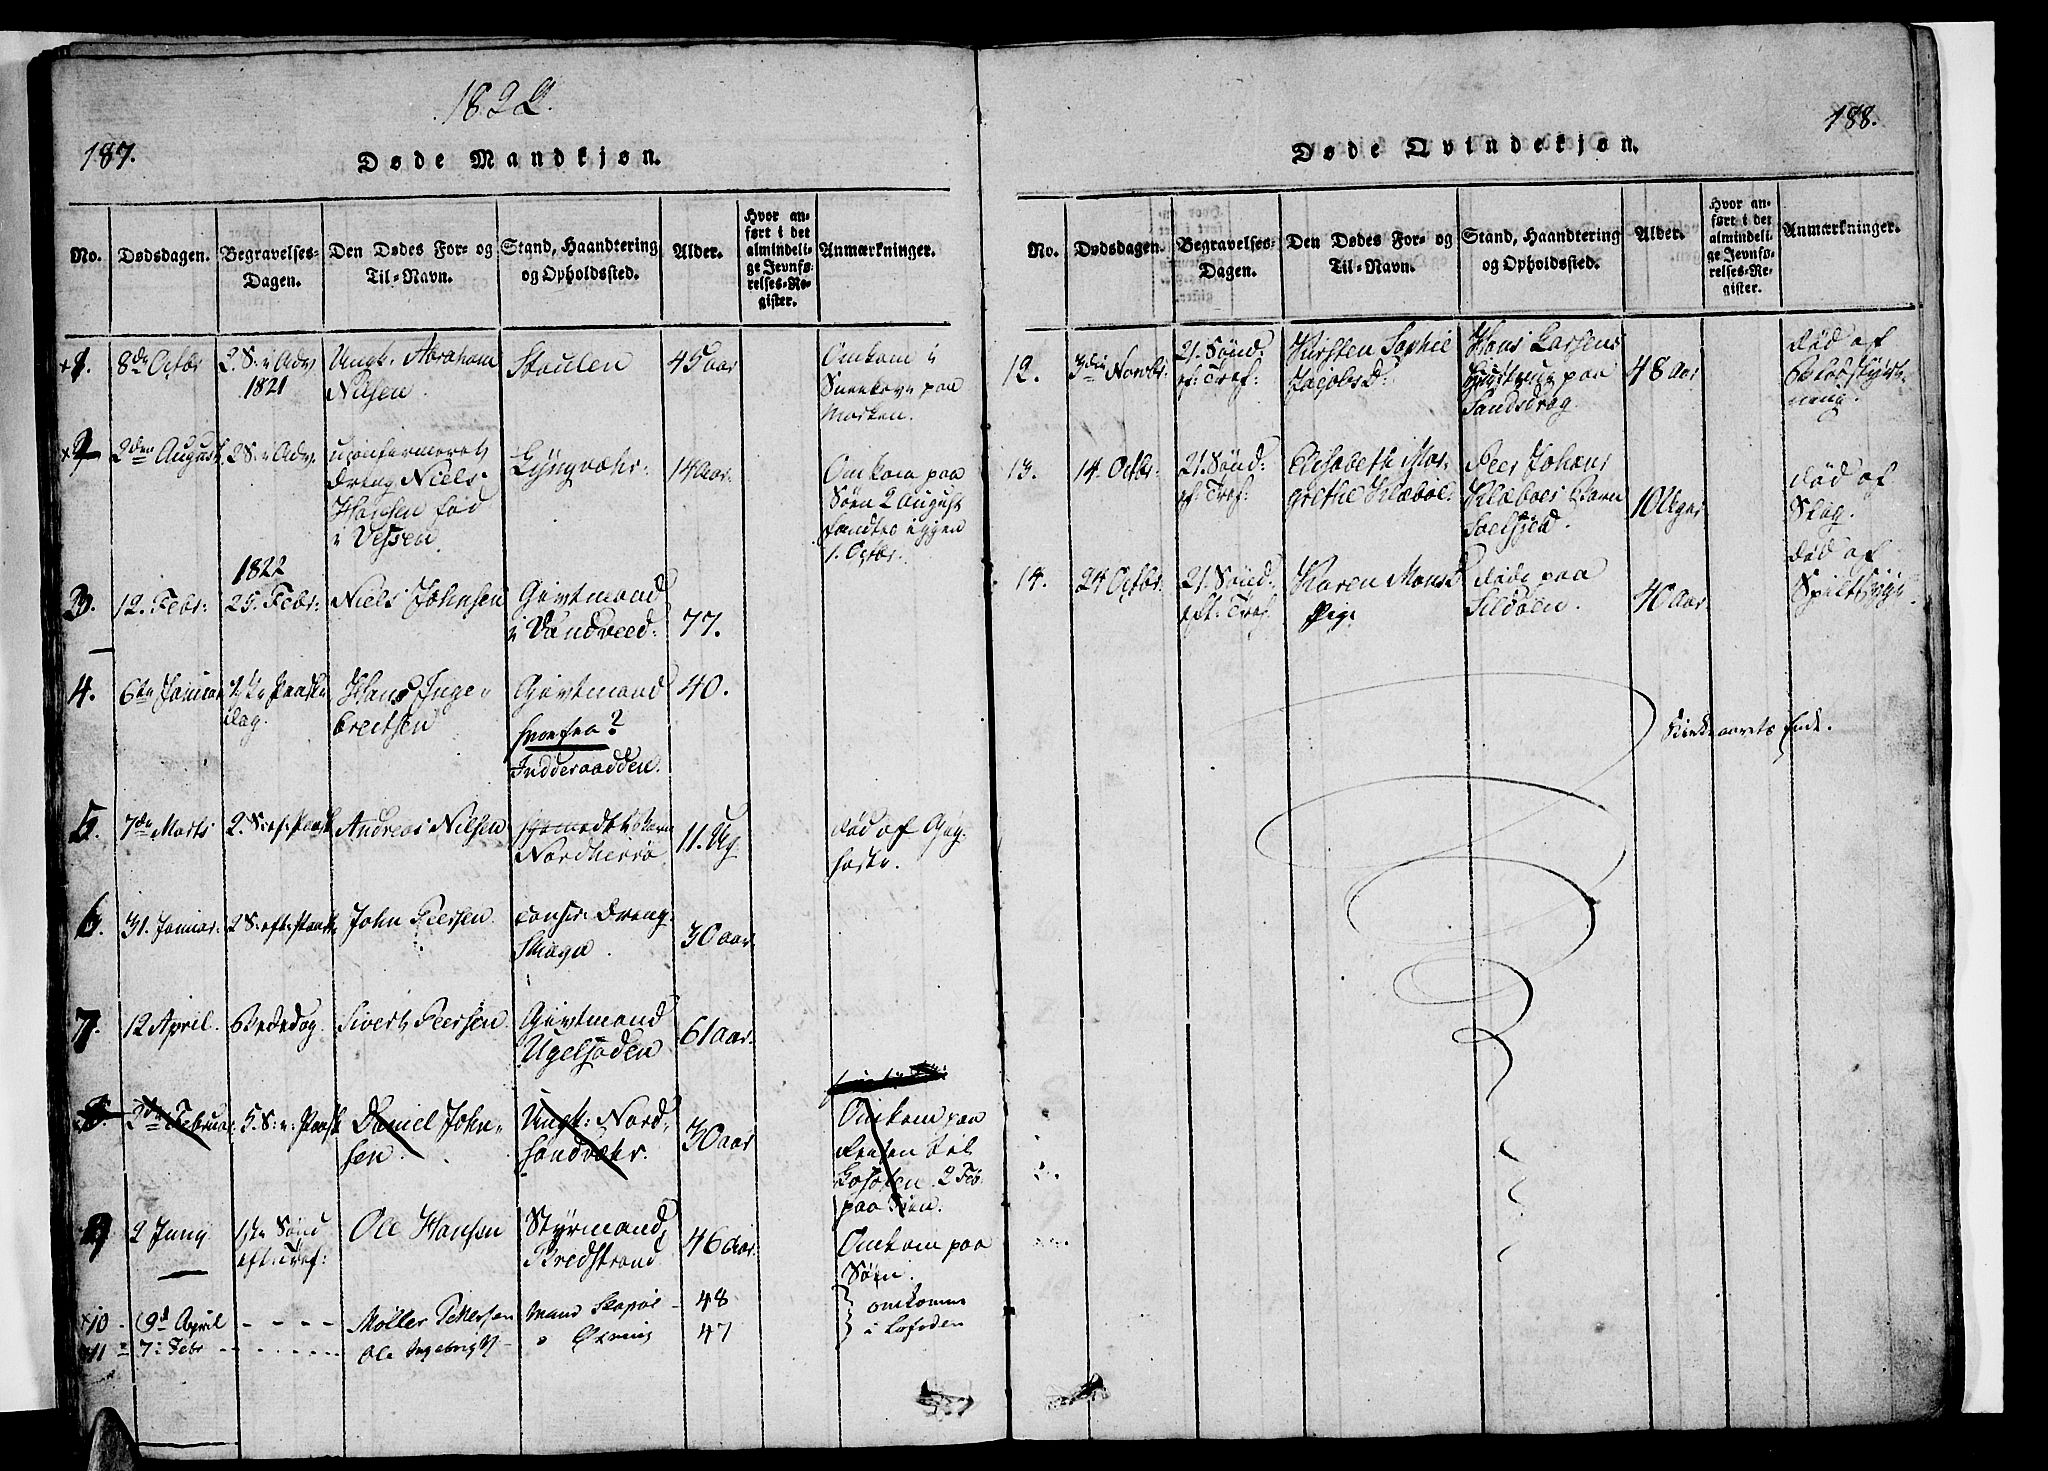 1822.
187.
Døde Mandkjøn.
No.
Dødsdagen.
Begravelses-
Dagen.
Den Dødes For- og
Til-Navn.
Stand, Haandtering
og Opholdssted.
Alder.
Hvor an-
ført i det
almindeli-
ge Jevnfø-
relses-Re-
gister.
Anmærkninger.
1.
8de Octbr
2. S. i Adv
1821
Ungk: Abraham
Nilsen
Stoulen
45 aar
Omkom i
paa
Morken.
2
2den August
2 S. i Adv.
uconfermeret
dreng Niels
Hansen fød
i Vessen.
Lyngvæhr.
14 aar.
Omkom paa
Søen 2 August
fandtes iggen
1. Octbr.
3.
12. Febr:
1822
25. Febr:
Niels Johnsen
Givtmand
i Vandveed.
77.
4.
6te Januar
Paaske
dag.
Hans Inge-
breitsen
Givtmand
hvorfra?
Indderaadden.
40.
5.
7de Marts
2. S. ef. Paask
Andreas Nilsen
Nordherrø
11. Ug.
død af Gig-
hoste.
6.
31. Januar.
2 S. eft. Paask
John Peersen
confir: dreng
30 aar.
7.
12 April.
Bededag.
Sivert Peersen.
Givtmand
Ugelsøden
61 aar.
2den Februar
5. S. e. Paask
Daniel John-
sen.
Ungk: Nord-
sandvæhr.
30 aar
Omkom paa
Reisen til
Lofoten 2 Feb.
paa Søen.
9
2 Juny
1ste Sønd
eft. Tref:
Ole Hansen
Styrmand,
Bredstrand
46 aar.
Omkom paa
Søen.
x10
9d April
Møller Pettersen
Mand
48
omkomne
x11
7: Febr
Ole Ingebrigts
47
i Lofoden
188.
Døde Qvindekjøn.
No.
Dødsdagen.
Begravelses-
Dagen.
Den Dødes For- og
Til-Navn.
Stand, Haandtering
og Opholdssted.
Alder.
Hvor an-
ført i det
almindeli-
ge Jevnfø-
relses-Re-
gister.
Anmærkninger.
12.
3die Novbr.
21. Sønd.
ef: Tref:
Kirsten Sophie
Jacobsd:
Hans Larsens
Hustrue paa
Sandsdrag.
48 aar
død af
Blodstyrt-
ning.
13.
14. Octbr.
21. Sønd:
ef: Tref:
Elisabeth Mar-
grethe Klæboe.
Peer Johans
Klæboes Barn
10 Uger
død af
Slag.
14.
24 Octbr.
21. Sønd.
eft: Tref.
Karen Monsd
Pige
paa
Sildøen.
40 aar
død af
Spilt Syge.
Kirkeaarets Ende.